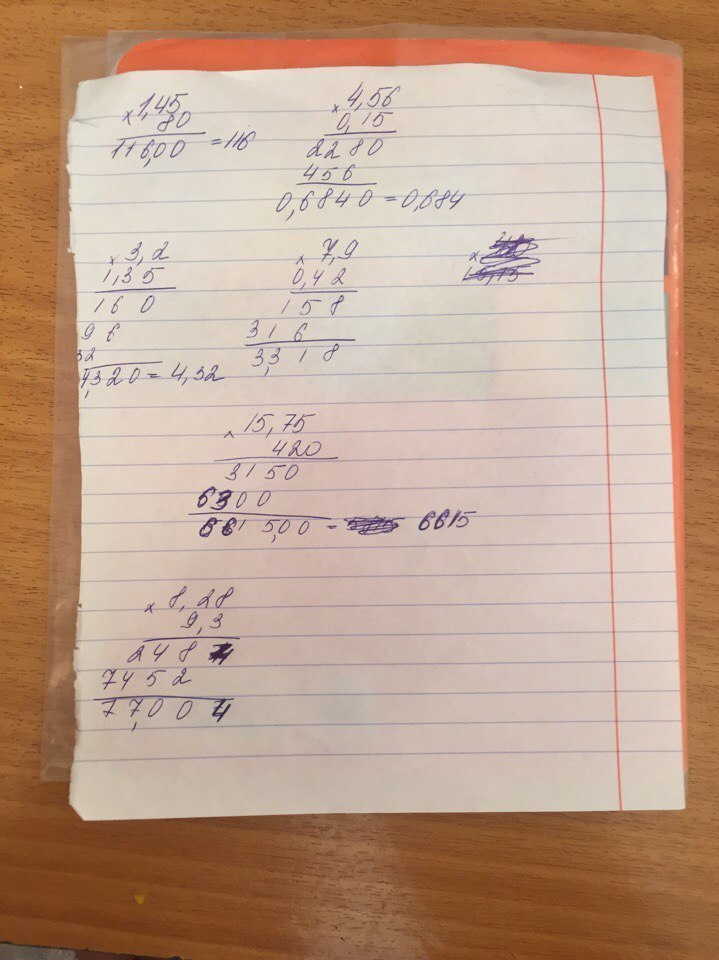 × 1,45
80
116,00 = 116
× 4,56
0,15
2280
456
0,6840 = 0,684
× 3,2
1,35
160
96
32
4,320 = 4,32
× 7,9
0,42
158
316
3,318
× 15,75
420
3150
6300
6615,00 = 6615
× 8,28
9,3
2484
7452
77,004